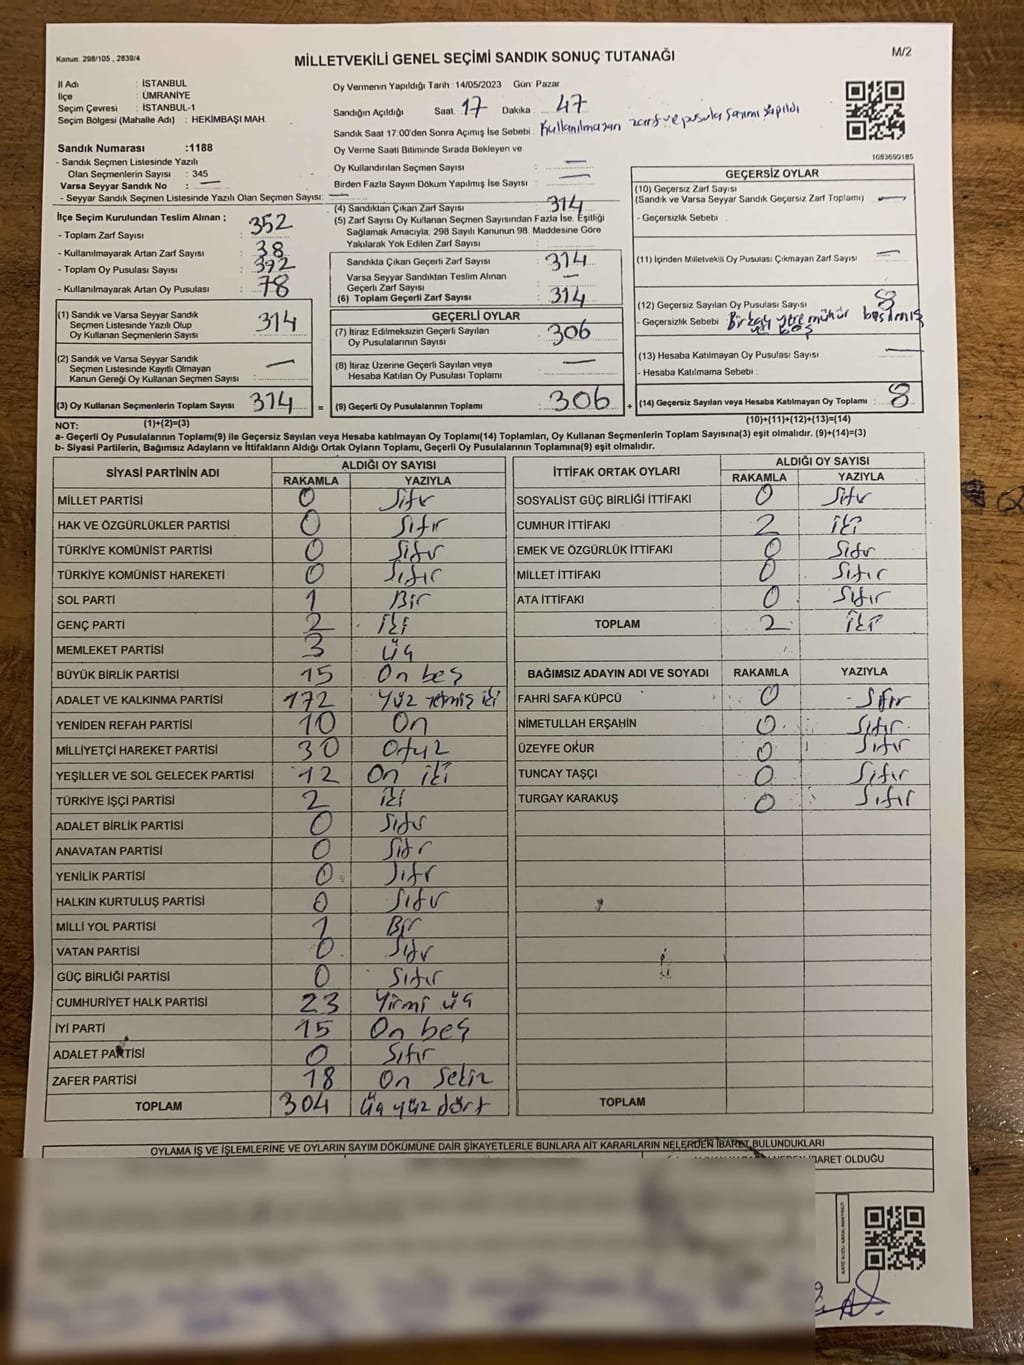 Kanun: 298/105 , 2839/4
MİLLETVEKİLİ GENEL SEÇİMİ SANDIK SONUÇ TUTANAĞI
M/2
İl Adı : İSTANBUL
İlçe : ÜMRANİYE
Seçim Çevresi : İSTANBUL-1
Seçim Bölgesi (Mahalle Adı) : HEKİMBAŞI MAH.
Sandık Numarası :1188
- Sandık Seçmen Listesinde Yazılı
Olan Seçmenlerin Sayısı : 345
Varsa Seyyar Sandık No : —
- Seyyar Sandık Seçmen Listesinde Yazılı Olan Seçmen Sayısı: —
Oy Vermenin Yapıldığı Tarih :14/05/2023 Gün: Pazar
Sandığın Açıldığı Saat: 17 Dakika : 47
Sandık Saat 17.00'den Sonra Açımış İse Sebebi : Kullanılmayan zarf ve pusula sayımı yapıldı
Oy Verme Saati Bitiminde Sırada Bekleyen ve
Oy Kullandırılan Seçmen Sayısı : —
Birden Fazla Sayım Döküm Yapılmış İse Sayısı : —
1683690185
İlçe Seçim Kurulundan Teslim Alınan ;
- Toplam Zarf Sayısı : 352
- Kullanılmayarak Artan Zarf Sayısı : 38
- Toplam Oy Pusulası Sayısı : 392
- Kullanılmayarak Artan Oy Pusulası : 78
(1) Sandık ve Varsa Seyyar Sandık
Seçmen Listesinde Yazılı Olup
Oy Kullanan Seçmenlerin Sayısı : 314
(2) Sandık ve Varsa Seyyar Sandık
Seçmen Listesinde Kayıtlı Olmayan
Kanun Gereği Oy Kullanan Seçmen Sayısı : —
(3) Oy Kullanan Seçmenlerin Toplam Sayısı : 314
(4) Sandıktan Çıkan Zarf Sayısı : 314
(5) Zarf Sayısı Oy Kullanan Seçmen Sayısından Fazla İse, Eşitliği
Sağlamak Amacıyla; 298 Sayılı Kanunun 98. Maddesine Göre
Yakılarak Yok Edilen Zarf Sayısı :
Sandıkta Çıkan Geçerli Zarf Sayısı : 314
Varsa Seyyar Sandıktan Teslim Alınan
Geçerli Zarf Sayısı : —
(6) Toplam Geçerli Zarf Sayısı : 314
GEÇERLİ OYLAR
(7) İtiraz Edilmeksizin Geçerli Sayılan
Oy Pusulalarının Sayısı : 306
(8) İtiraz Üzerine Geçerli Sayılan veya
Hesaba Katılan Oy Pusulası Toplamı : —
= (9) Geçerli Oy Pusulalarının Toplamı : 306
GEÇERSİZ OYLAR
(10) Geçersiz Zarf Sayısı
(Sandık ve Varsa Seyyar Sandık Geçersiz Zarf Toplamı) : —
- Geçersizlik Sebebi :
(11) İçinden Milletvekili Oy Pusulası Çıkmayan Zarf Sayısı : —
(12) Geçersiz Sayılan Oy Pusulası Sayısı : 8
- Geçersizlik Sebebi : Birkaç yere mühür basılmış
boş
(13) Hesaba Katılmayan Oy Pusulası Sayısı : —
- Hesaba Katılmama Sebebi :
+ (14) Geçersiz Sayılan veya Hesaba Katılmayan Oy Toplamı : 8
NOT: (1)+(2)=(3) (10)+(11)+(12)+(13)=(14)
a- Geçerli Oy Pusulalarının Toplamı(9) ile Geçersiz Sayılan veya Hesaba katılmayan Oy Toplamı(14) Toplamları, Oy Kullanan Seçmenlerin Toplam Sayısına(3) eşit olmalıdır. (9)+(14)=(3)
b- Siyasi Partilerin, Bağımsız Adayların ve İttifakların Aldığı Ortak Oyların Toplamı, Geçerli Oy Pusulalarının Toplamına(9) eşit olmalıdır.
SİYASİ PARTİNİN ADI ALDIĞI OY SAYISI
RAKAMLA YAZIYLA
MİLLET PARTİSİ 0 Sıfır
HAK VE ÖZGÜRLÜKLER PARTİSİ 0 Sıfır
TÜRKİYE KOMÜNİST PARTİSİ 0 Sıfır
TÜRKİYE KOMÜNİST HAREKETİ 0 Sıfır
SOL PARTİ 1 Bir
GENÇ PARTİ 2 iki
MEMLEKET PARTİSİ 3 üç
BÜYÜK BİRLİK PARTİSİ 15 On beş
ADALET VE KALKINMA PARTİSİ 172 Yüz yetmiş iki
YENİDEN REFAH PARTİSİ 10 On
MİLLİYETÇİ HAREKET PARTİSİ 30 Otuz
YEŞİLLER VE SOL GELECEK PARTİSİ 12 On iki
TÜRKİYE İŞÇİ PARTİSİ 2 iki
ADALET BİRLİK PARTİSİ 0 Sıfır
ANAVATAN PARTİSİ 0 Sıfır
YENİLİK PARTİSİ 0 Sıfır
HALKIN KURTULUŞ PARTİSİ 0 Sıfır
MİLLİ YOL PARTİSİ 1 Bir
VATAN PARTİSİ 0 Sıfır
GÜÇ BİRLİĞİ PARTİSİ 0 Sıfır
CUMHURİYET HALK PARTİSİ 23 Yirmi üç
İYİ PARTİ 15 On beş
ADALET PARTİSİ 0 Sıfır
ZAFER PARTİSİ 18 On Sekiz
TOPLAM 304 üç yüz dört
İTTİFAK ORTAK OYLARI ALDIĞI OY SAYISI
RAKAMLA YAZIYLA
SOSYALİST GÜÇ BİRLİĞİ İTTİFAKI 0 Sıfır
CUMHUR İTTİFAKI 2 iki
EMEK VE ÖZGÜRLÜK İTTİFAKI 0 Sıfır
MİLLET İTTİFAKI 0 Sıfır
ATA İTTİFAKI 0 Sıfır
TOPLAM 2 iki
BAĞIMSIZ ADAYIN ADI VE SOYADI RAKAMLA YAZIYLA
FAHRİ SAFA KÜPCÜ 0 Sıfır
NİMETULLAH ERŞAHİN 0 Sıfır
ÜZEYFE OKUR 0 Sıfır
TUNCAY TAŞÇI 0 Sıfır
TURGAY KARAKUŞ 0 Sıfır
TOPLAM
OYLAMA İŞ VE İŞLEMLERİNE VE OYLARIN SAYIM DÖKÜMÜNE DAİR ŞİKAYETLERLE BUNLARA AİT KARARLARIN NELERDEN İBARET BULUNDUKLARI
İBARET OLDUĞU